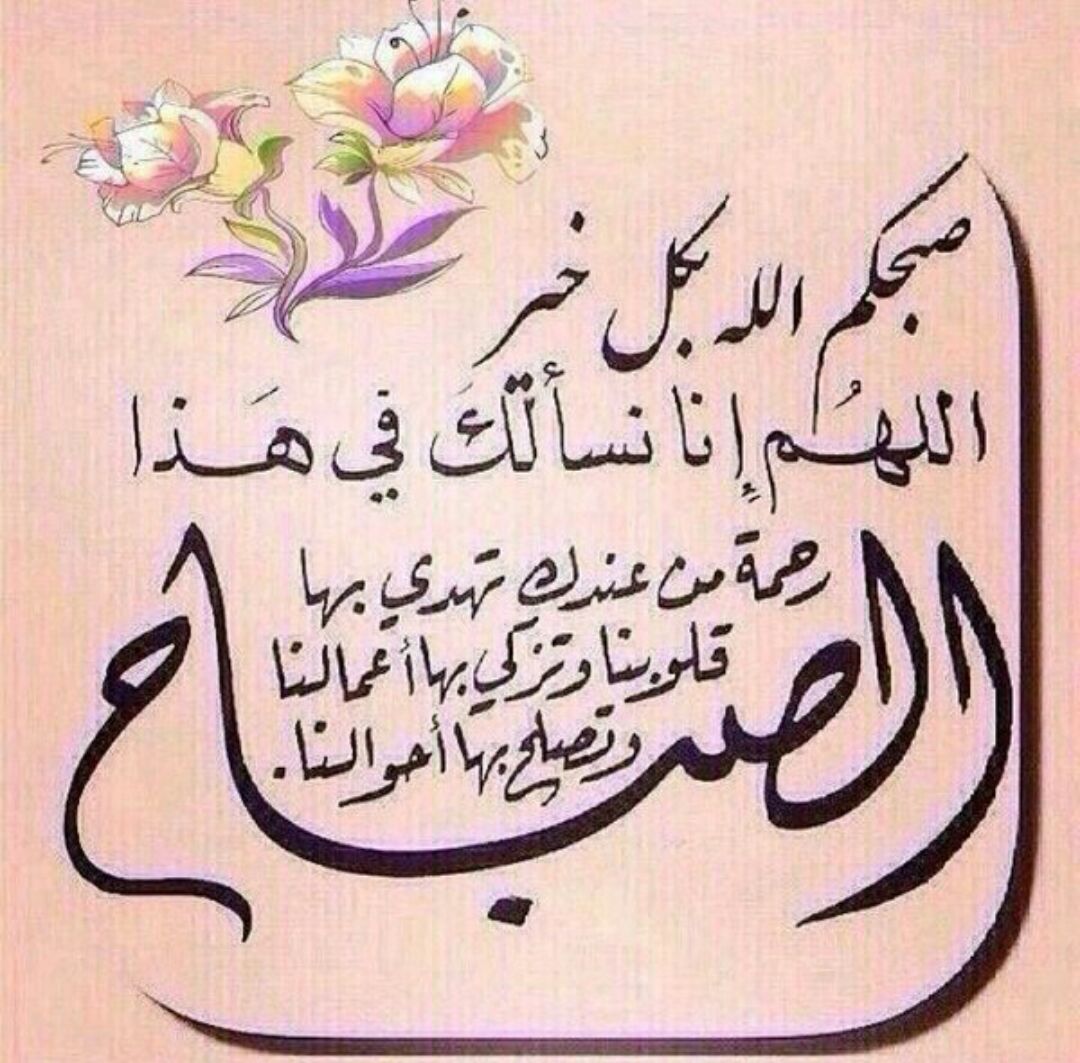 صبحكم الله بكل خير
اللهُم إِنا نسألكَ في هَذا
الصباح
رحمة من عندك تهدي بها
قلوبنا وتزكي بها أعمالنا
وتصلح بها أحوالنا.